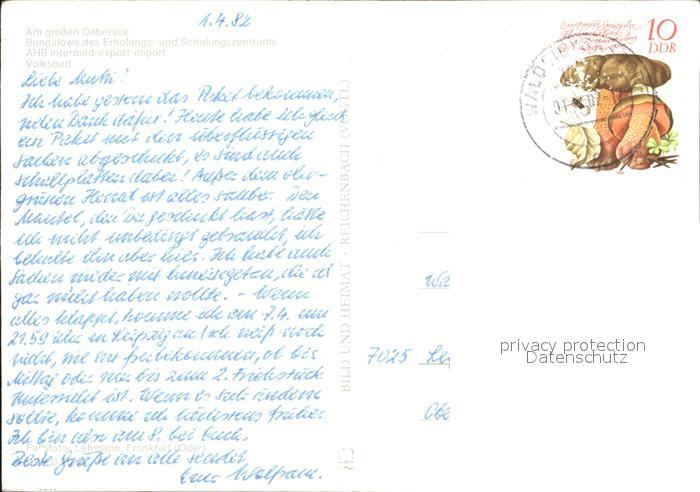 1.4.82
Am großen Däbersee
Bungalows des Erholungs- und Schulungszentrums
AHB intermed-export-import
Volksbad
Liebe Mutti!
Ich habe gestern das Paket bekommen,
vielen Dank dafür! Heute habe ich gleich
ein Paket mit den überflüssigen
Sachen abgeschickt, es sind auch
Schallplatten dabei! Außer dem oliv-
grünen Hemd ist alles sauber. Den
Mantel, den Du geschickt hast, hätte
ich nicht unbedingt gebraucht, ich
behalte ihn aber hier. Ich habe auch
Sachen wieder mit hineingegeben, die ich
gar nicht haben wollte. - Wenn
alles klappt, komme ich am 7.4. um
21.59 Uhr in Leipzig an (ich weiß noch
nicht, wie wir freibekommen, ob bis
Mittag oder nur bis zum 2. Frühstück
Unterricht ist. Wenn es sich ändern
sollte, komme ich höchstens früher.
Ich bin also am 8. bei Euch.
Beste Grüße an alle sendet
Euer Wolfram.
Farbfoto: Lehmann, Frankfurt (Oder)
BILD UND HEIMAT · REICHENBACH (VOGTL)
10
DDR
WALDSI
7025 Lei
privacy protection
Datenschutz